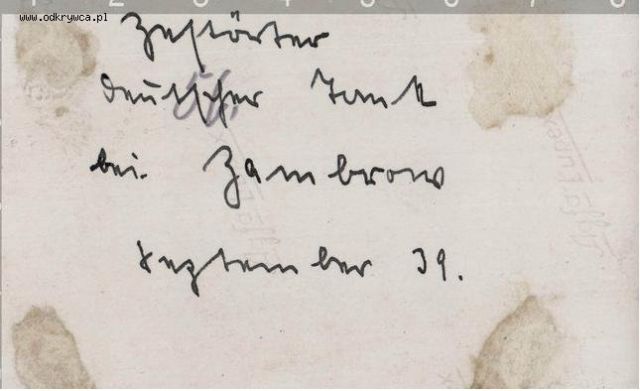 1 2 3 4 5 6 7 8
www.odkrywca.pl
Zerstörter
deutscher Tank
bei Zambrow
September 39.